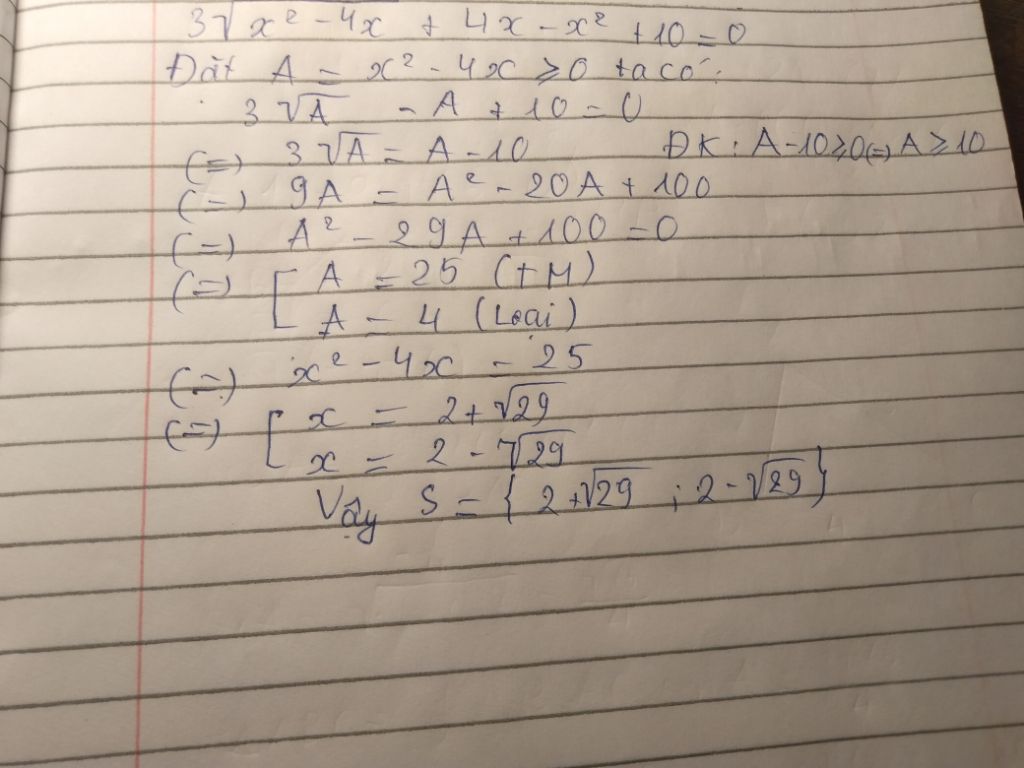 3√x² - 4x + 4x - x² + 10 = 0
Đặt A = x² - 4x ≥ 0 ta có:
3√A - A + 10 = 0
(=) 3√A = A - 10 ĐK: A - 10 ≥ 0 (=) A ≥ 10
(=) 9A = A² - 20A + 100
(=) A² - 29A + 100 = 0
(=) [ A = 25 (TM)
A = 4 (Loại)
(=) x² - 4x = 25
(=) [ x = 2 + √29
x = 2 - √29
Vậy S = { 2 + √29 ; 2 - √29 }